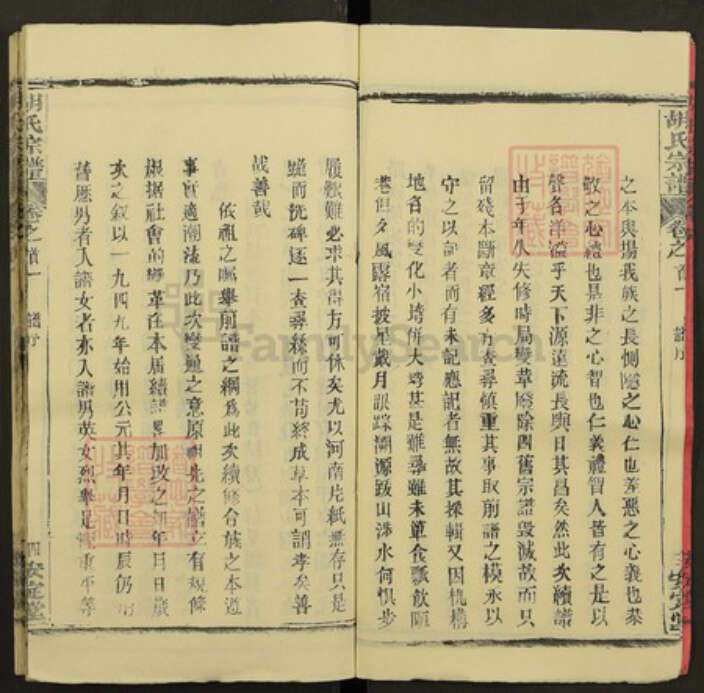 胡氏宗譜 卷之首一 譜序 安定堂
之本與揚我族之長惻隱之心仁也羞惡之心義也恭
敬之心禮也是非之心智也仁義禮智人皆有之是以
聲名洋溢乎天下源遠流長與日其昌矣然此次續譜
由于年久失修時局變革廢除四舊宗譜毀滅故而只
留殘本斷章經多方查尋慎重其事取前譜之模永以
守之以記者而有未記應記者無故其採輯又因機構
地名的變化小垮併大垮甚是難尋雖未簞食瓢飲陋
巷但久風露宿披星戴月跟踪溯源跋山涉水何懼步
履艱難必求其得方可休矣尤以河南片紙無存只是
隨而抚碑逐一查尋絲而不苟終成草本可謂孝矣善
哉善哉
依祖之囑舉前譜之綱為此次續修合族之本遵
事所適潮流乃此次變通之意原明先之譜立有規條
根據社會的變革在本居續譜畧加改之如年月日歲
次之叙以一九四九年始用公元其年月日時辰仍用
舊歷男者入譜女者亦入譜男英女烈舉是重平等
胡氏宗譜 卷之首一 譜序 四 安定堂
FamilySearch